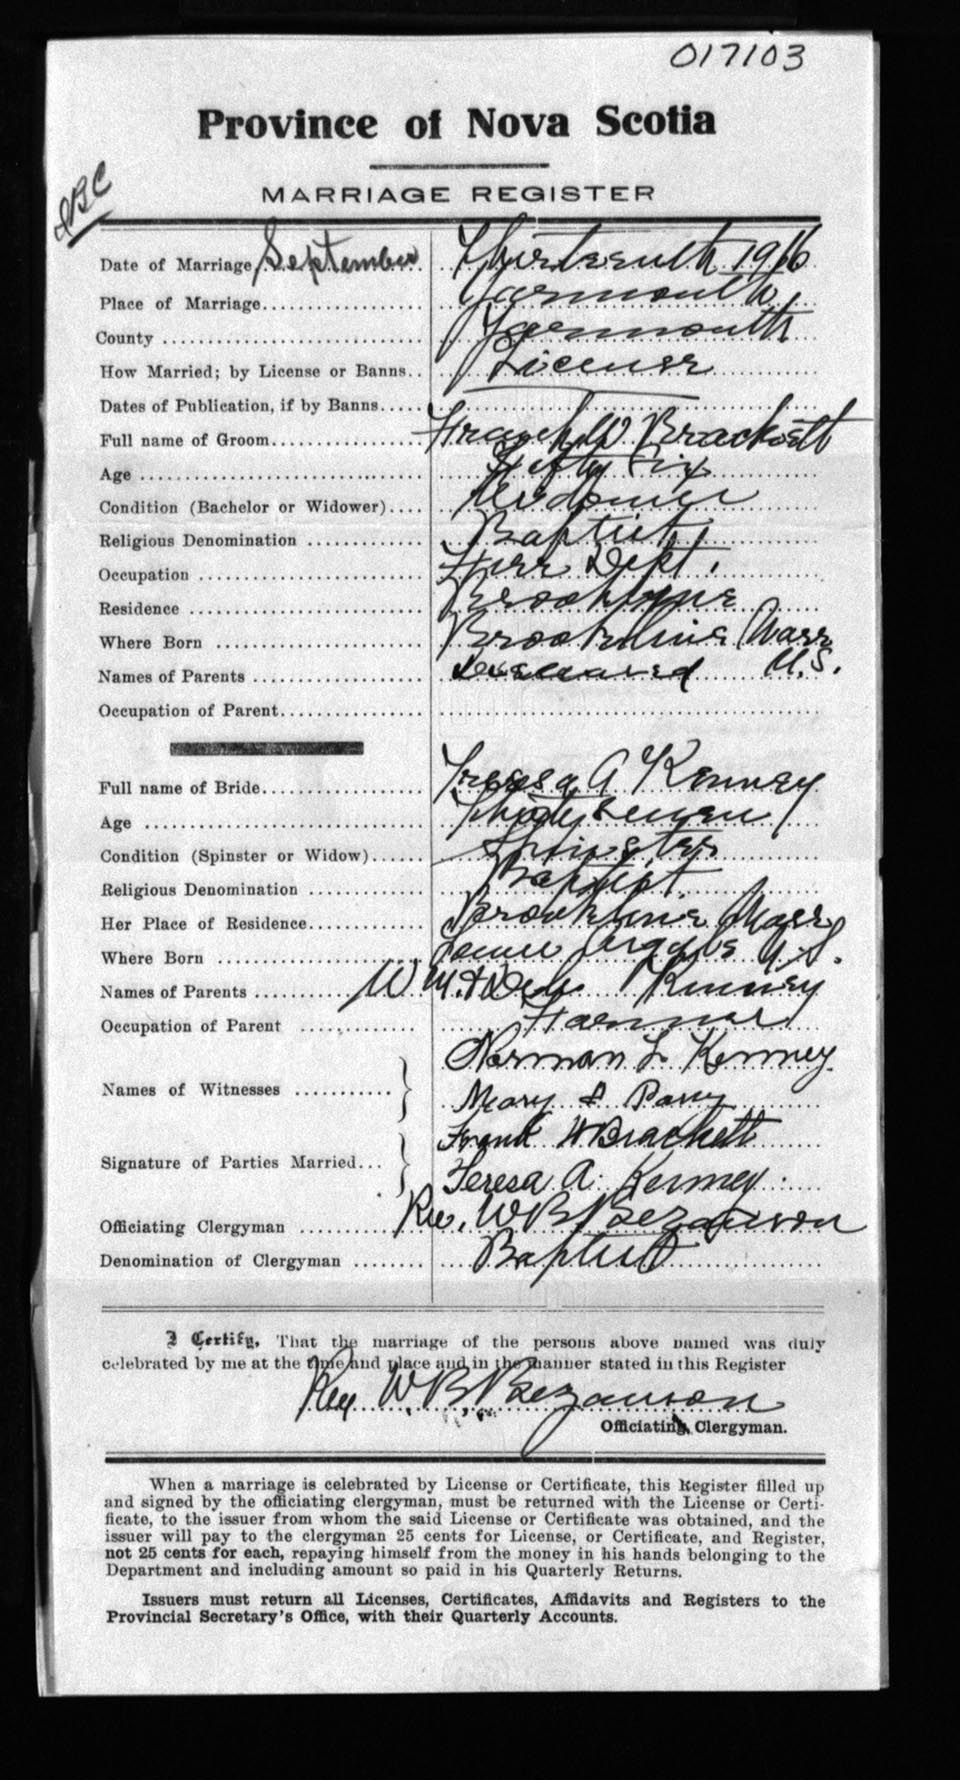 017103
Province of Nova Scotia
MARRIAGE REGISTER
Date of Marriage, September Thirteenth 1916
Place of Marriage Yarmouth
County Yarmouth
How Married; by License or Banns License
Dates of Publication, if by Banns
Full name of Groom Frank W Brackett
Age Fifty Six
Condition (Bachelor or Widower) Widower
Religious Denomination Baptist
Occupation Fire Dept.
Residence Brookline
Where Born Brookline Mass
U.S.
Names of Parents Deceased
Occupation of Parent
Full name of Bride Treesa A Kenney
Age Thirty Seven
Condition (Spinster or Widow) Spinster
Religious Denomination Baptist
Her Place of Residence Brookline Mass
Where Born U.S.
Names of Parents Wm & Kenney
Occupation of Parent Farmer
Names of Witnesses Norman L Kenney
Mary & Parry
Signature of Parties Married Frank W Brackett
Teresa A. Kenney
Officiating Clergyman Rev. W B Bezanson
Denomination of Clergyman Baptist
I Certify, That the marriage of the persons above named was duly
celebrated by me at the time and place and in the manner stated in this Register
Rev W. B. Bezanson
Officiating Clergyman.
When a marriage is celebrated by License or Certificate, this Register filled up
and signed by the officiating clergyman, must be returned with the License or Certi-
ficate, to the issuer from whom the said License or Certificate was obtained, and the
issuer will pay to the clergyman 25 cents for License, or Certificate, and Register,
not 25 cents for each, repaying himself from the money in his hands belonging to the
Department and including amount so paid in his Quarterly Returns.
Issuers must return all Licenses, Certificates, Affidavits and Registers to the
Provincial Secretary's Office, with their Quarterly Accounts.